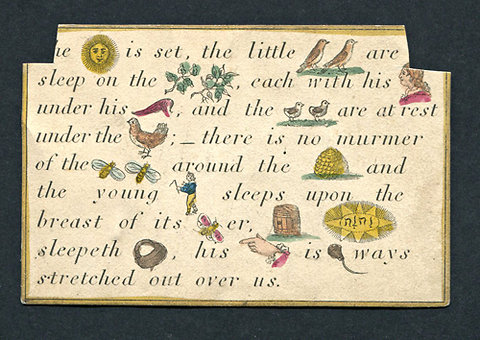 he is set, the little are
sleep on the , each with his
under his , and the are at rest
under the ; _ there is no murmer
of the around the and
the young sleeps upon the
breast of its er,
sleepeth , his is ways
stretched out over us.